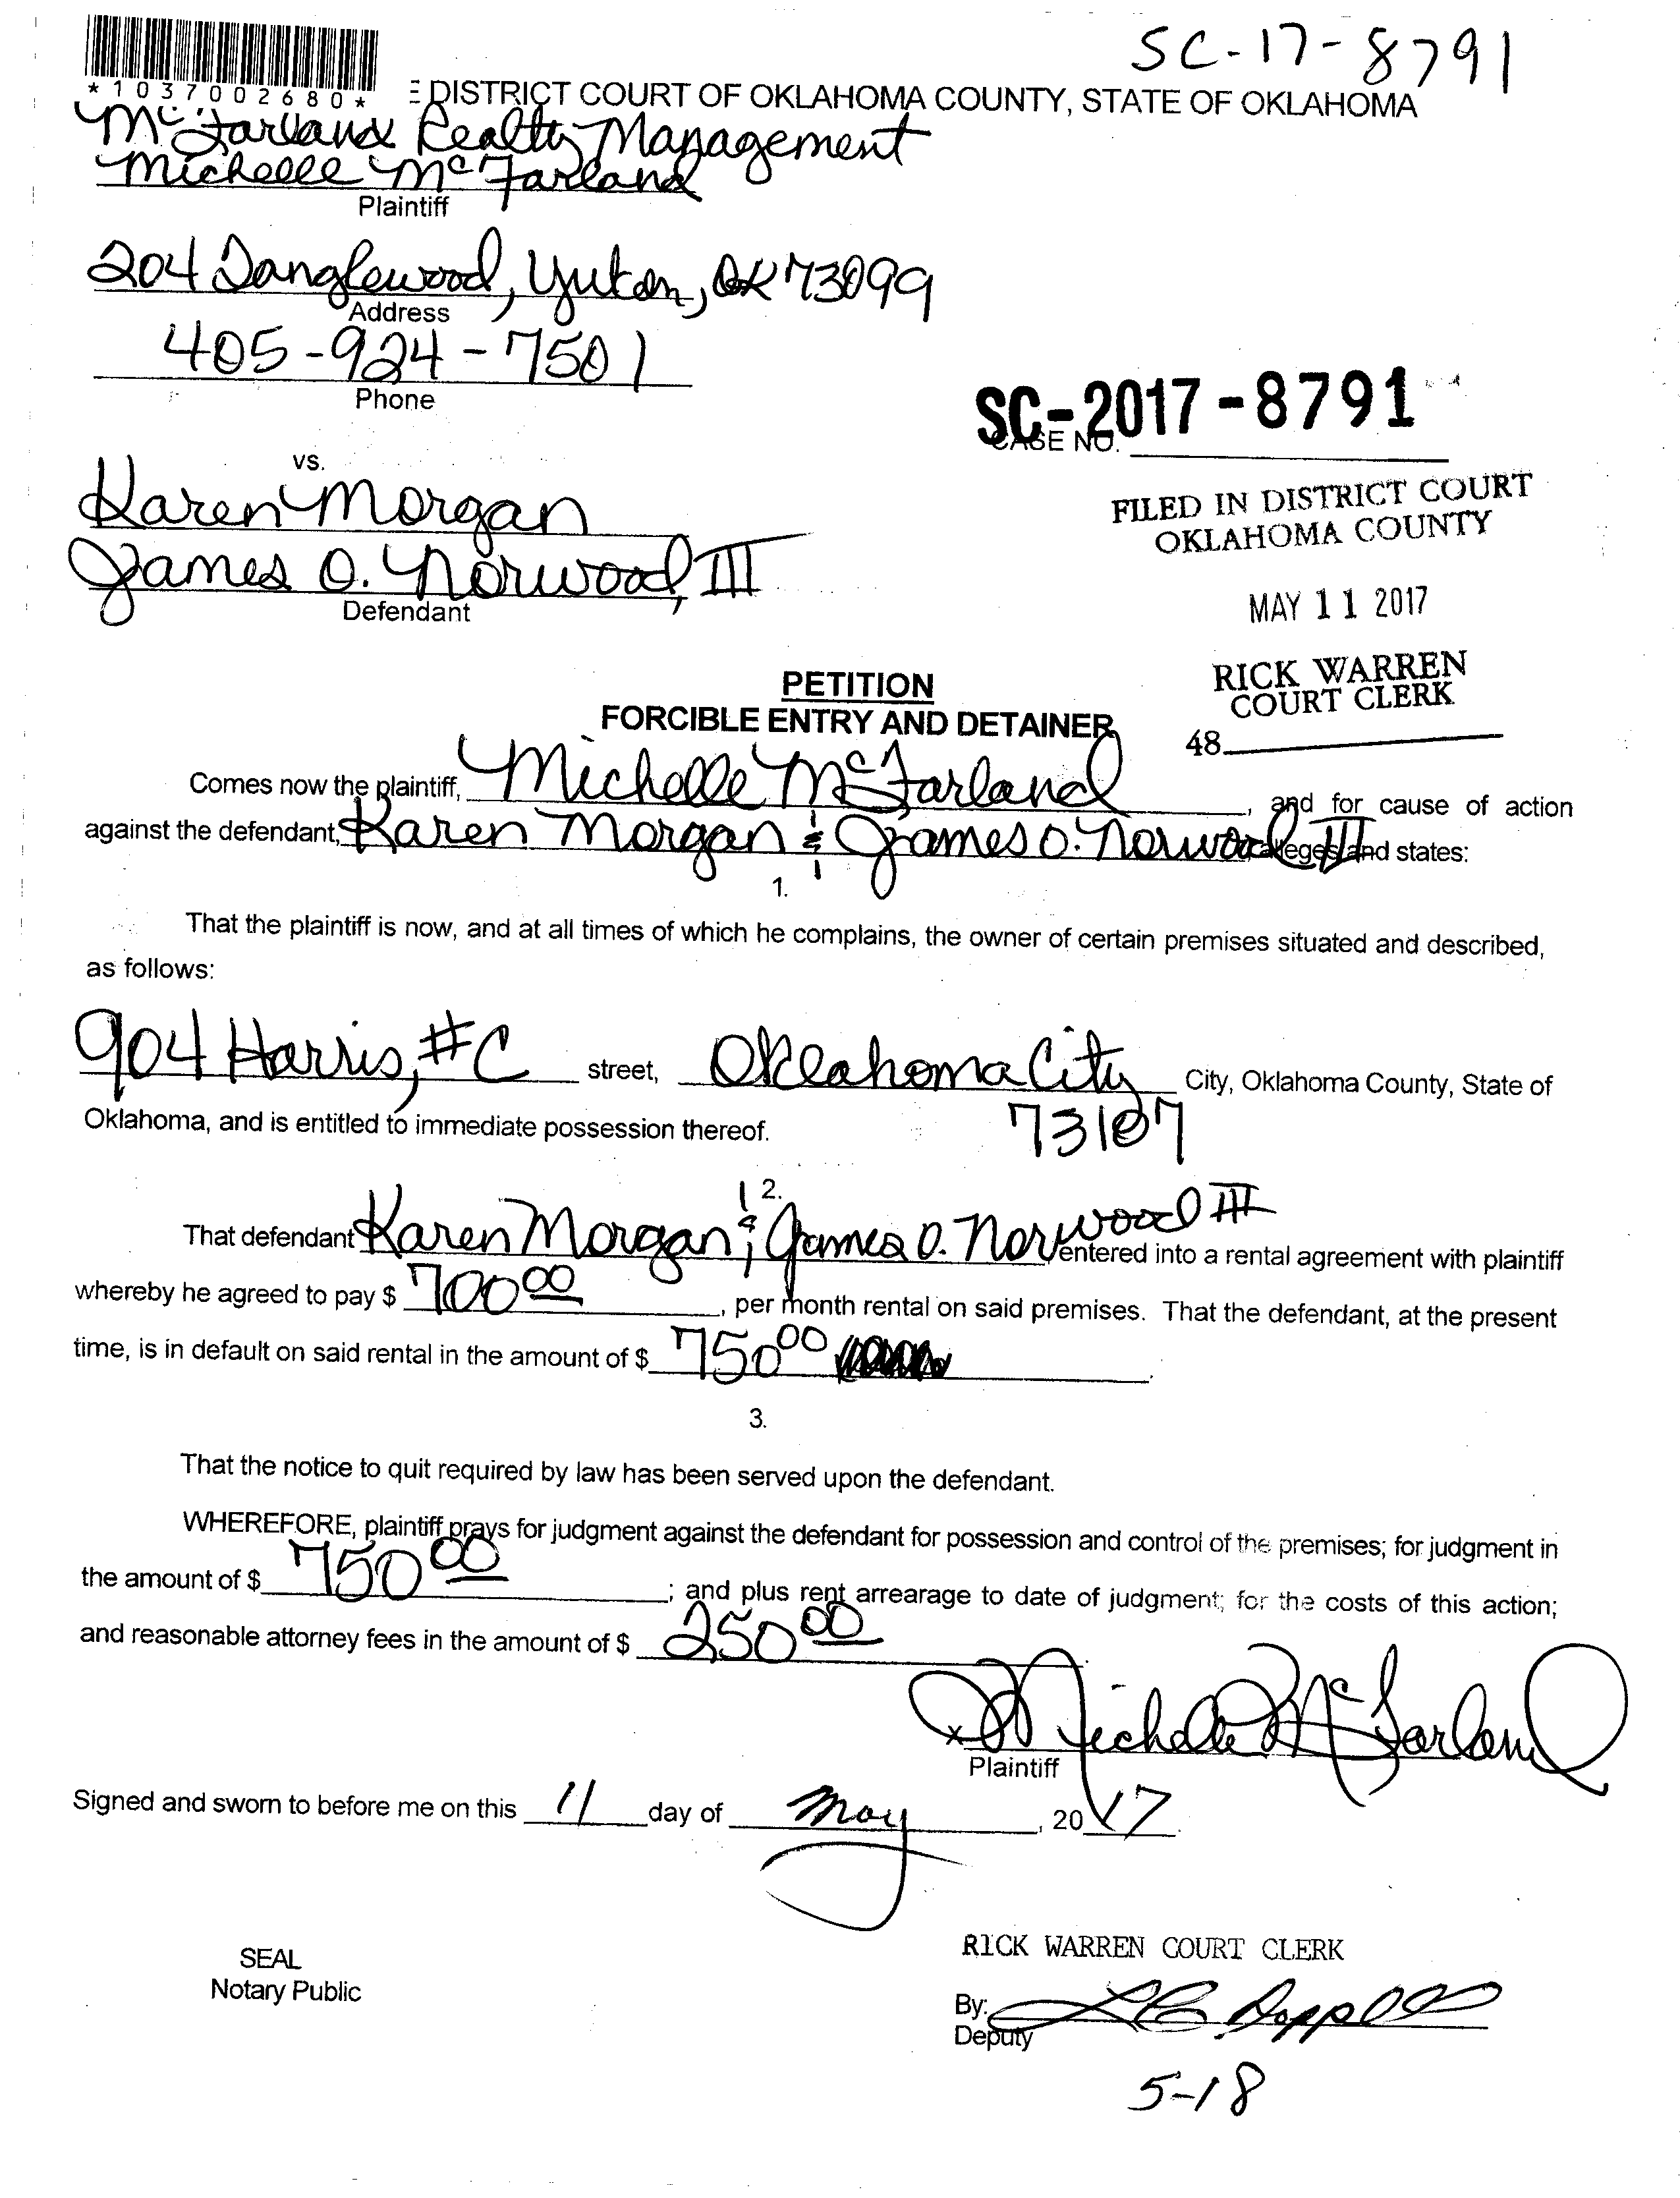 SC-17-8791
*1037002680*
E DISTRICT COURT OF OKLAHOMA COUNTY, STATE OF OKLAHOMA
McFarland Realty Management
Michelle McFarland
Plaintiff
204 Tanglewood, Yukon, OK 73099
Address
405-924-7501
Phone
SC-2017-8791
CASE NO.
vs.
Karen Morgan
James O. Norwood, III
Defendant
FILED IN DISTRICT COURT
OKLAHOMA COUNTY
MAY 11 2017
RICK WARREN
COURT CLERK
48
PETITION
FORCIBLE ENTRY AND DETAINER
Comes now the plaintiff, Michelle McFarland, and for cause of action
against the defendant, Karen Morgan & James O. Norwood III alleges and states:
1.
That the plaintiff is now, and at all times of which he complains, the owner of certain premises situated and described,
as follows:
904 Harris, #C street, Oklahoma City City, Oklahoma County, State of
73107
Oklahoma, and is entitled to immediate possession thereof.
2.
That defendant Karen Morgan & James O. Norwood III entered into a rental agreement with plaintiff
whereby he agreed to pay $ 700 00, per month rental on said premises. That the defendant, at the present
time, is in default on said rental in the amount of $ 750 00.
3.
That the notice to quit required by law has been served upon the defendant.
WHEREFORE, plaintiff prays for judgment against the defendant for possession and control of the premises; for judgment in
the amount of $ 750 00; and plus rent arrearage to date of judgment; for the costs of this action;
and reasonable attorney fees in the amount of $ 250 00.
x Michelle McFarland
Plaintiff
Signed and sworn to before me on this 11 day of May, 2017.
SEAL
Notary Public
RICK WARREN COURT CLERK
By:
Deputy
5-18